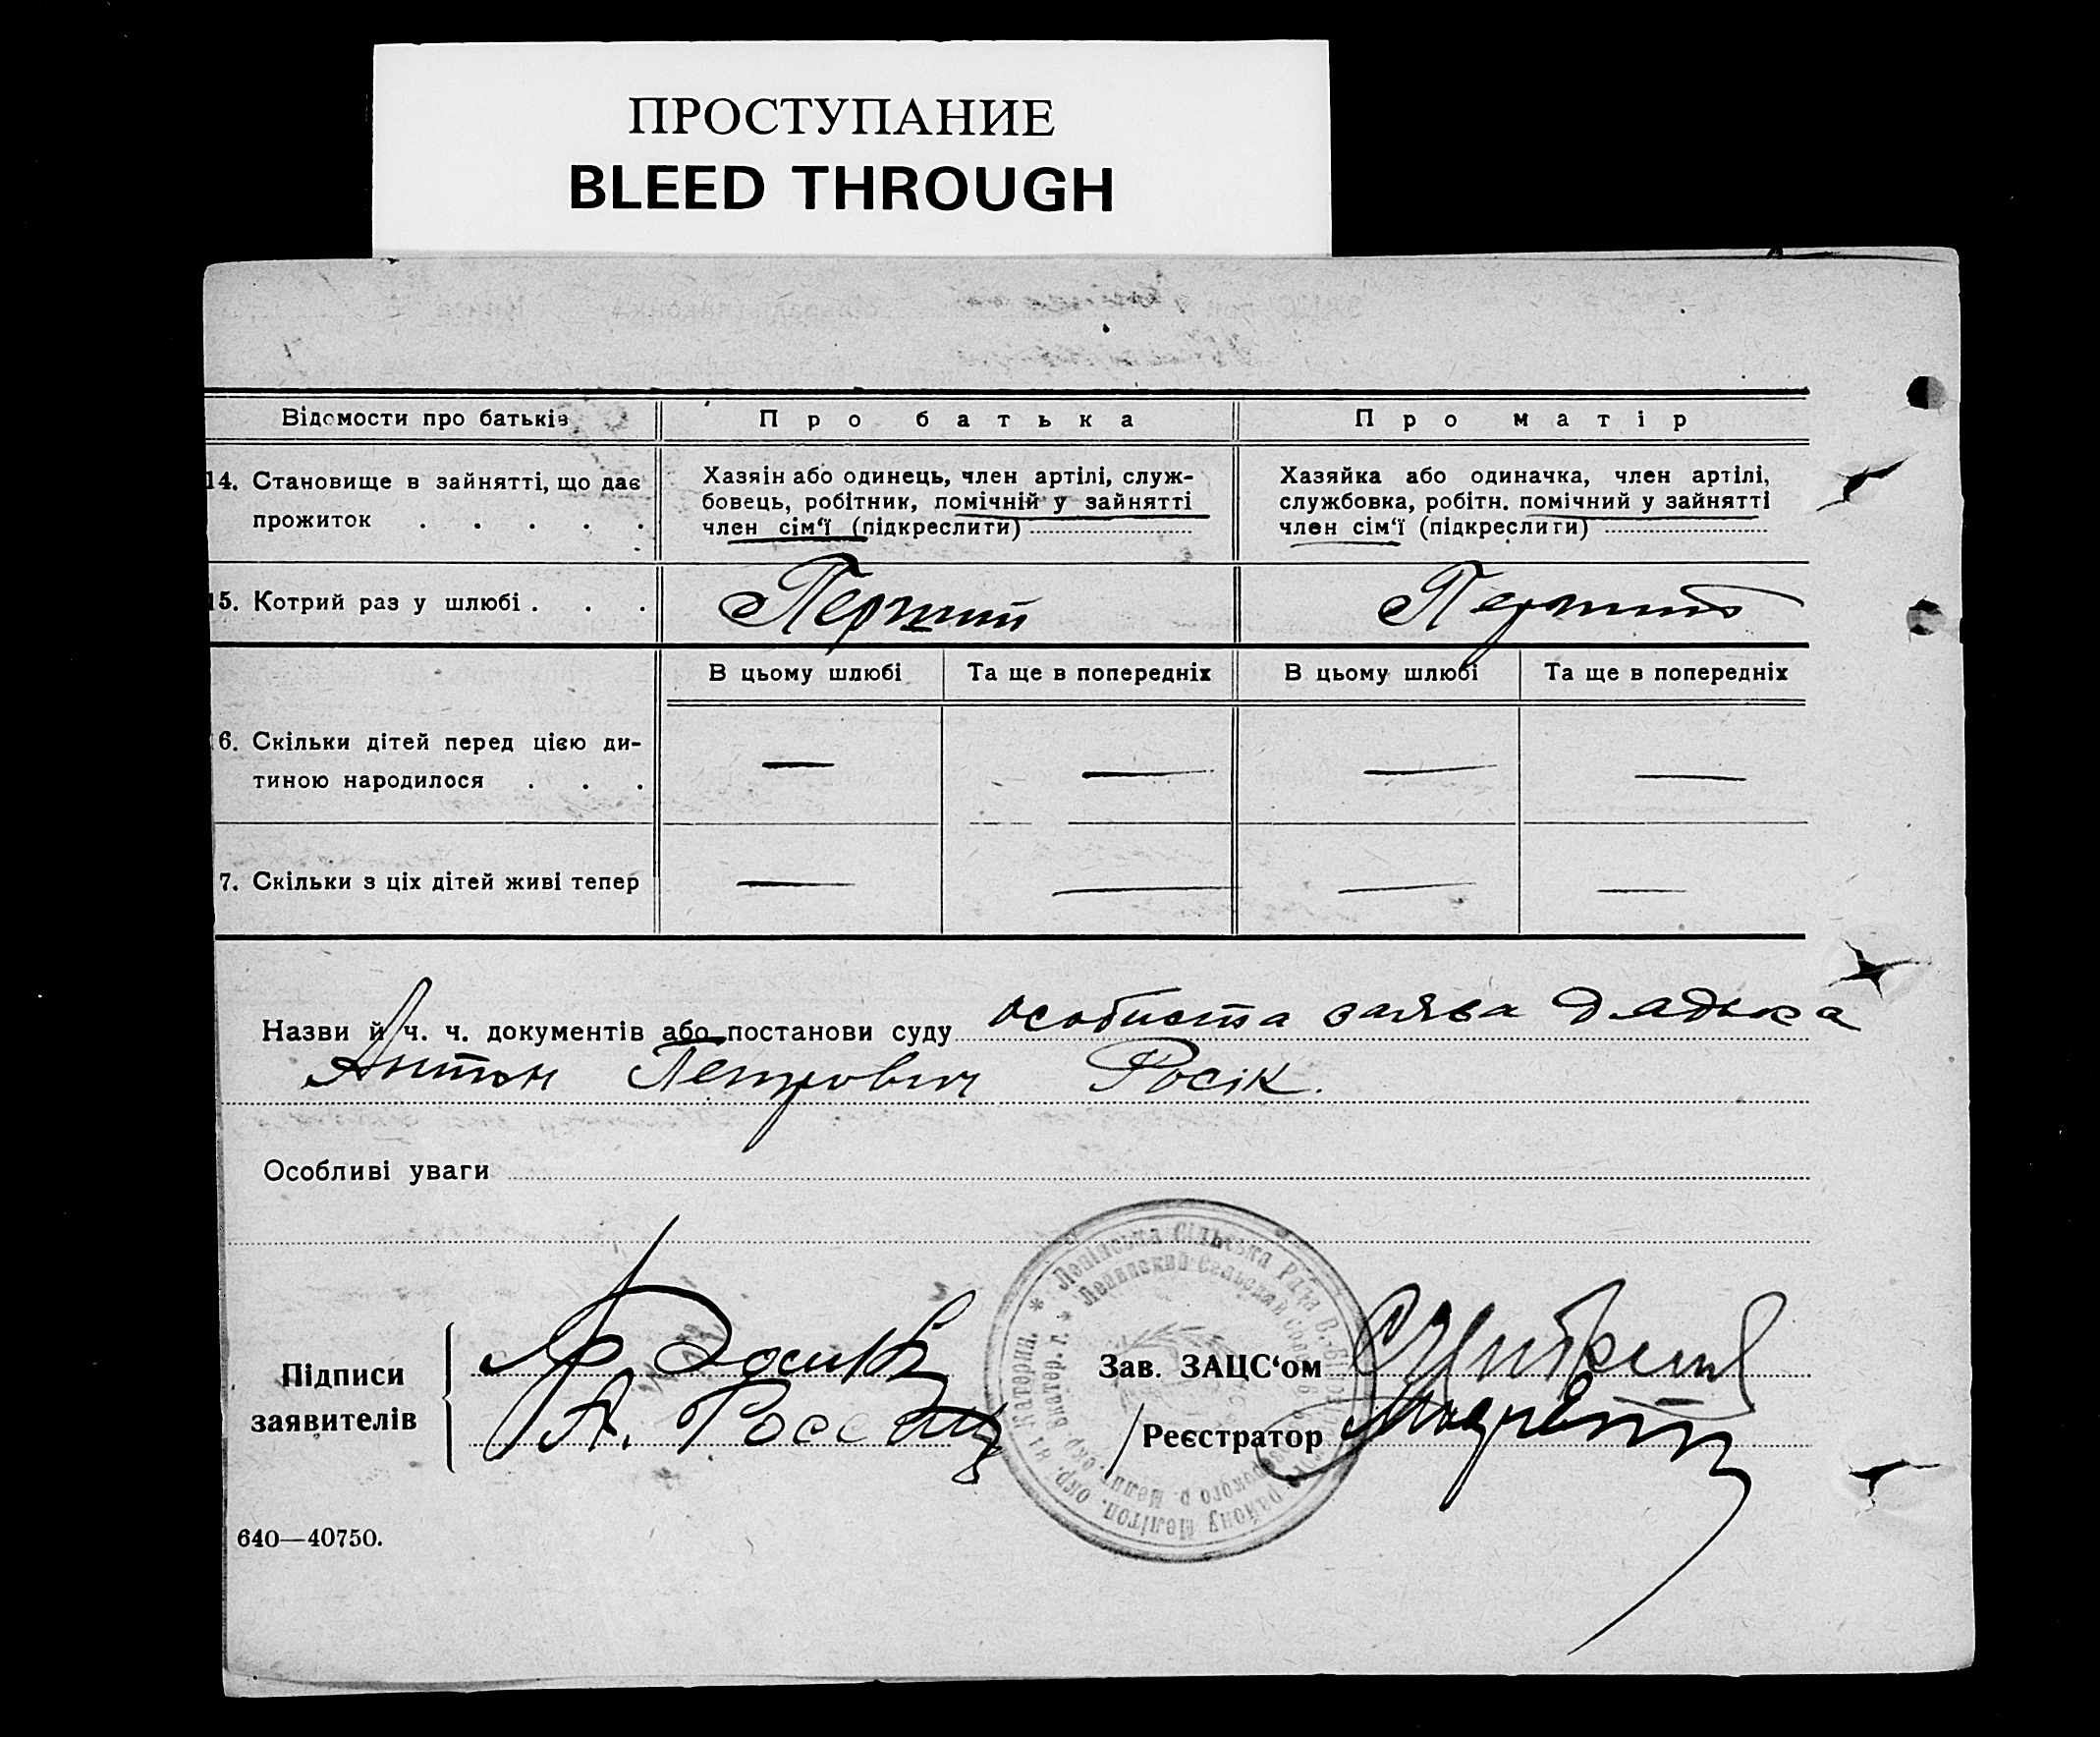 ПРОСТУПАНИЕ
BLEED THROUGH
Відомости про батьків
Про батька
Про матір
14. Становище в зайнятті, що дає
прожиток . . . . .
Хазяін або одинець, член артілі, служ-
бовець, робітник, помічній у зайнятті
член сім‘ї (підкреслити)
Хазяйка або одиначка, член артілі,
службовка, робітн. помічний у зайнятті
член сім‘ї (підкреслити)
15. Котрий раз у шлюбі . . .
Перший
Перший
В цьому шлюбі
Та ще в попередніх
В цьому шлюбі
Та ще в попередніх
6. Скільки дітей перед цією ди-
тиною народилося . . .
— — — —
7. Скільки з ціх дітей живі тепер
— — — —
Назви й ч. ч. документів або постанови суду особиста заява дядька
Антон Петрович Росік.
Особливі уваги
Підписи
заявителів
А.
Зав. ЗАЦС‘ом
Реєстратор
Ленінська Сільська Рада В.-Біл району Мелітоп. окр. на Катерин.
Ленинский Сельский р. Мелит. окр. Екатер. г.
640—40750.